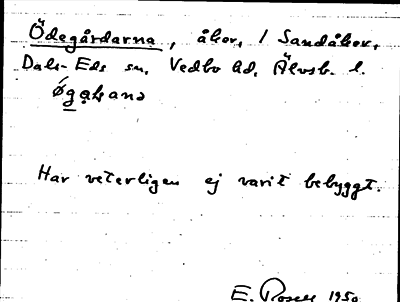 Ödegårdarna, åker, / Sandåker,
Dals-Eds sn. Vedbo hd. Älvsb. l.
Har veterligen ej varit bebyggt.
E. 1950